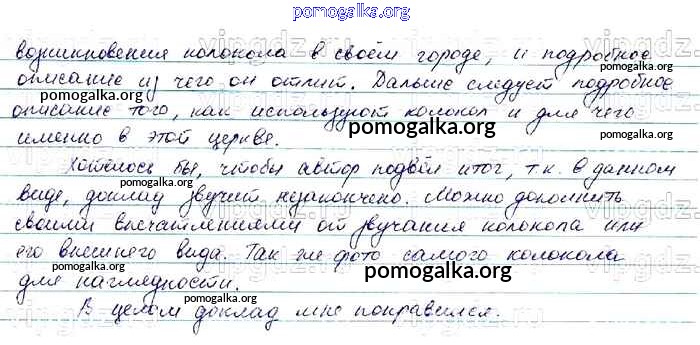 pomogalka.org
возникновения колокола в своём городе, и подробное
описание из чего он отлит. Дальше следует подробное
описание того, как используют колокол и для чего
именно в этой церкве.
Хотелось бы, чтобы автор подвёл итог, т.к. в данном
виде, доклад звучит незакончено. Можно дополнить
своими впечатлениями от звучания колокола или
его внешнего вида. Так же фото самого колокола
для наглядности.
В целом доклад мне понравился.
pomogalka.org
pomogalka.org
pomogalka.org
pomogalka.org
pomogalka.org
pomogalka.org
pomogalka.org
pomogalka.org
pomogalka.org
pomogalka.org
pomogalka.org
vipgdz